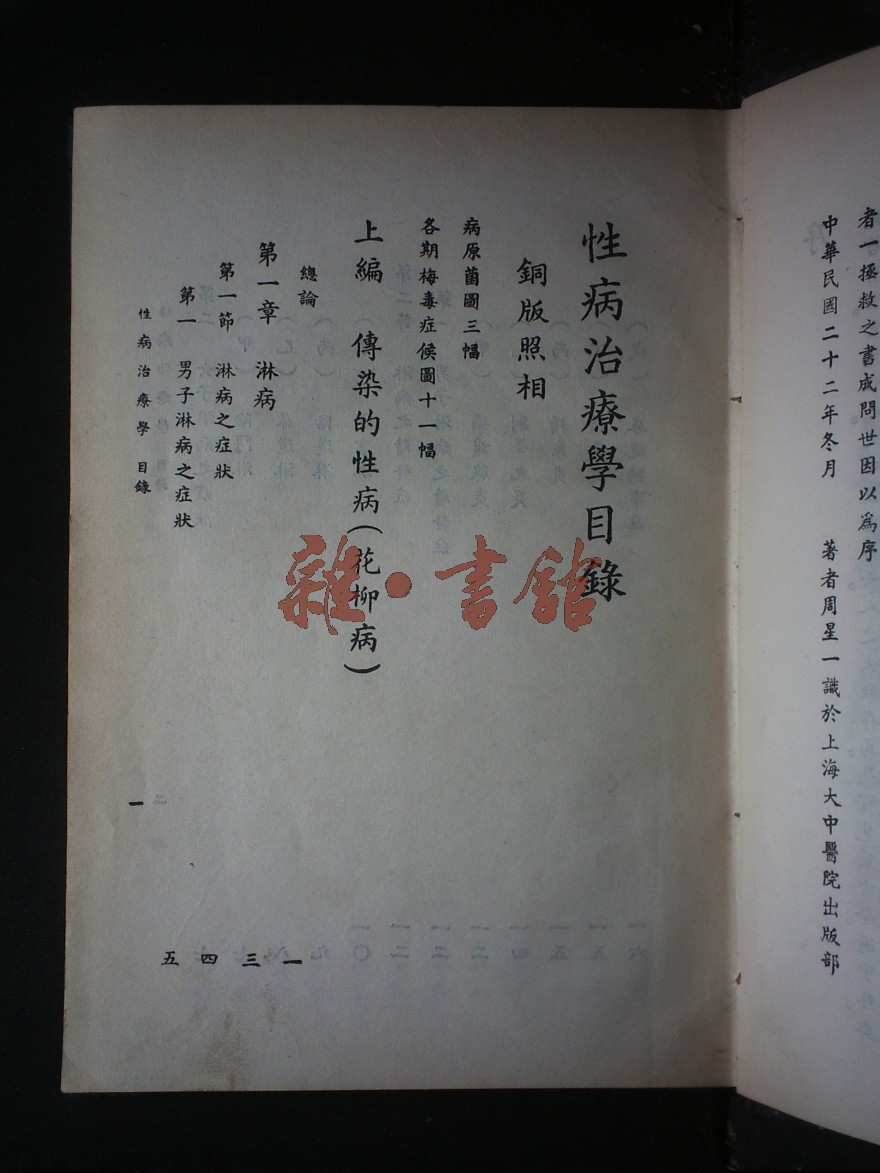 者一拯救之書成問世因以爲序
中華民國二十二年冬月 著者周星一識於上海大中醫院出版部
性病治療學目錄
銅版照相
病原菌圖三幅
各期梅毒症候圖十一幅
上編 傳染的性病(花柳病)
總論 一
第一章 淋病 三
第一節 淋病之症狀 四
第一 男子淋病之症狀 五
性病治療學 目錄 一
雜·書館